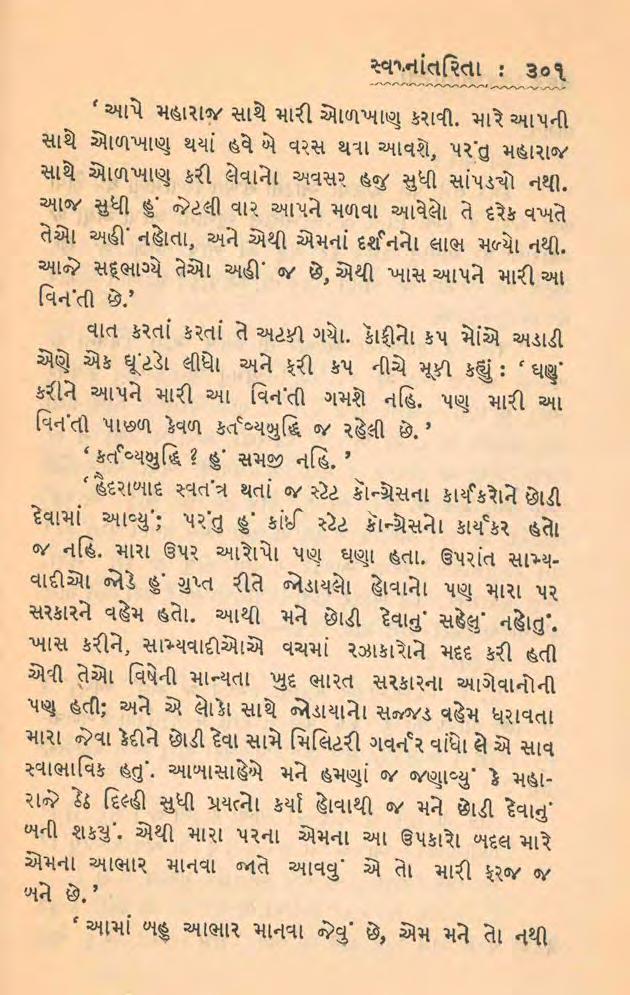 સ્વપ્નાંતરિતા : ૩૦૧
‘ આપે મહારાજ સાથે મારી ઓળખાણ કરાવી. મારે આપની
સાથે ઓળખાણ થયાં હવે બે વરસ થવા આવશે, પરંતુ મહારાજ
સાથે ઓળખાણ કરી લેવાનો અવસર હજુ સુધી સાંપડ્યો નથી.
આજ સુધી હું જેટલી વાર આપને મળવા આવેલો તે દરેક વખતે
તેઓ અહીં નહોતા, અને એથી એમનાં દર્શનનો લાભ મળ્યો નથી.
આજે સદ્‌ભાગ્યે તેઓ અહીં જ છે, એથી ખાસ આપને મારી આ
વિનંતી છે.’
વાત કરતાં કરતાં તે અટકી ગયો. કૉફીનો કપ મોંએ અડાડી
એણે એક ઘૂંટડો લીધો અને ફરી કપ નીચે મૂકી કહ્યું : ‘ ઘણું
કરીને આપને મારી આ વિનંતી ગમશે નહિ. પણ મારી આ
વિનંતી પાછળ કેવળ કર્તવ્યબુદ્ધિ જ રહેલી છે. ’
‘ કર્તવ્યબુદ્ધિ ? હું સમજી નહિ. ’
‘ હૈદરાબાદ સ્વતંત્ર થતાં જ સ્ટેટ કૉન્ગ્રેસના કાર્યકરોને છોડી
દેવામાં આવ્યું; પરંતુ હું કાંઈ સ્ટેટ કૉન્ગ્રેસનો કાર્યકર હતો
જ નહિ. મારા ઉપર આરોપો પણ ઘણા હતા. ઉપરાંત સામ્ય-
વાદીઓ જોડે હું ગુપ્ત રીતે જોડાયલો હોવાનો પણ મારા પર
સરકારને વહેમ હતો. આથી મને છોડી દેવાનું સહેલું નહોતું.
ખાસ કરીને, સામ્યવાદીઓએ વચમાં રઝાકારોને મદદ કરી હતી
એવી તેઓ વિષેની માન્યતા ખુદ ભારત સરકારના આગેવાનોની
પણ હતી; અને એ લોકો સાથે જોડાયાનો સજ્જડ વહેમ ધરાવતા
મારા જેવા કેદીને છોડી દેવા સામે મિલિટરી ગવર્નર વાંધો લે એ સાવ
સ્વાભાવિક હતું. આબાસાહેબે મને હમણાં જ જણાવ્યું કે મહા-
રાજે ઠેઠ દિલ્હી સુધી પ્રયત્નો કર્યા હોવાથી જ મને છોડી દેવાનું
બની શકયું. એથી મારા પરના એમના આ ઉપકારો બદલ મારે
એમના આભાર માનવા જાતે આવવું એ તો મારી ફરજ જ
બને છે. ’
‘ આમાં બહુ આભાર માનવા જેવું છે, એમ મને તો નથી